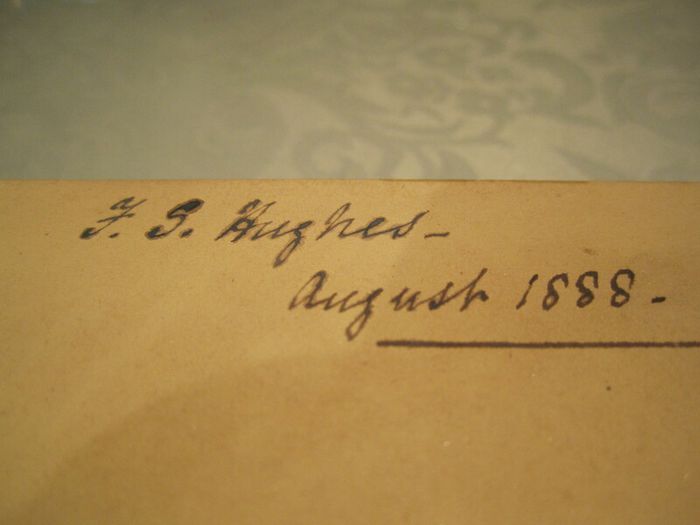 F. G. Hughes -
August 1888 -